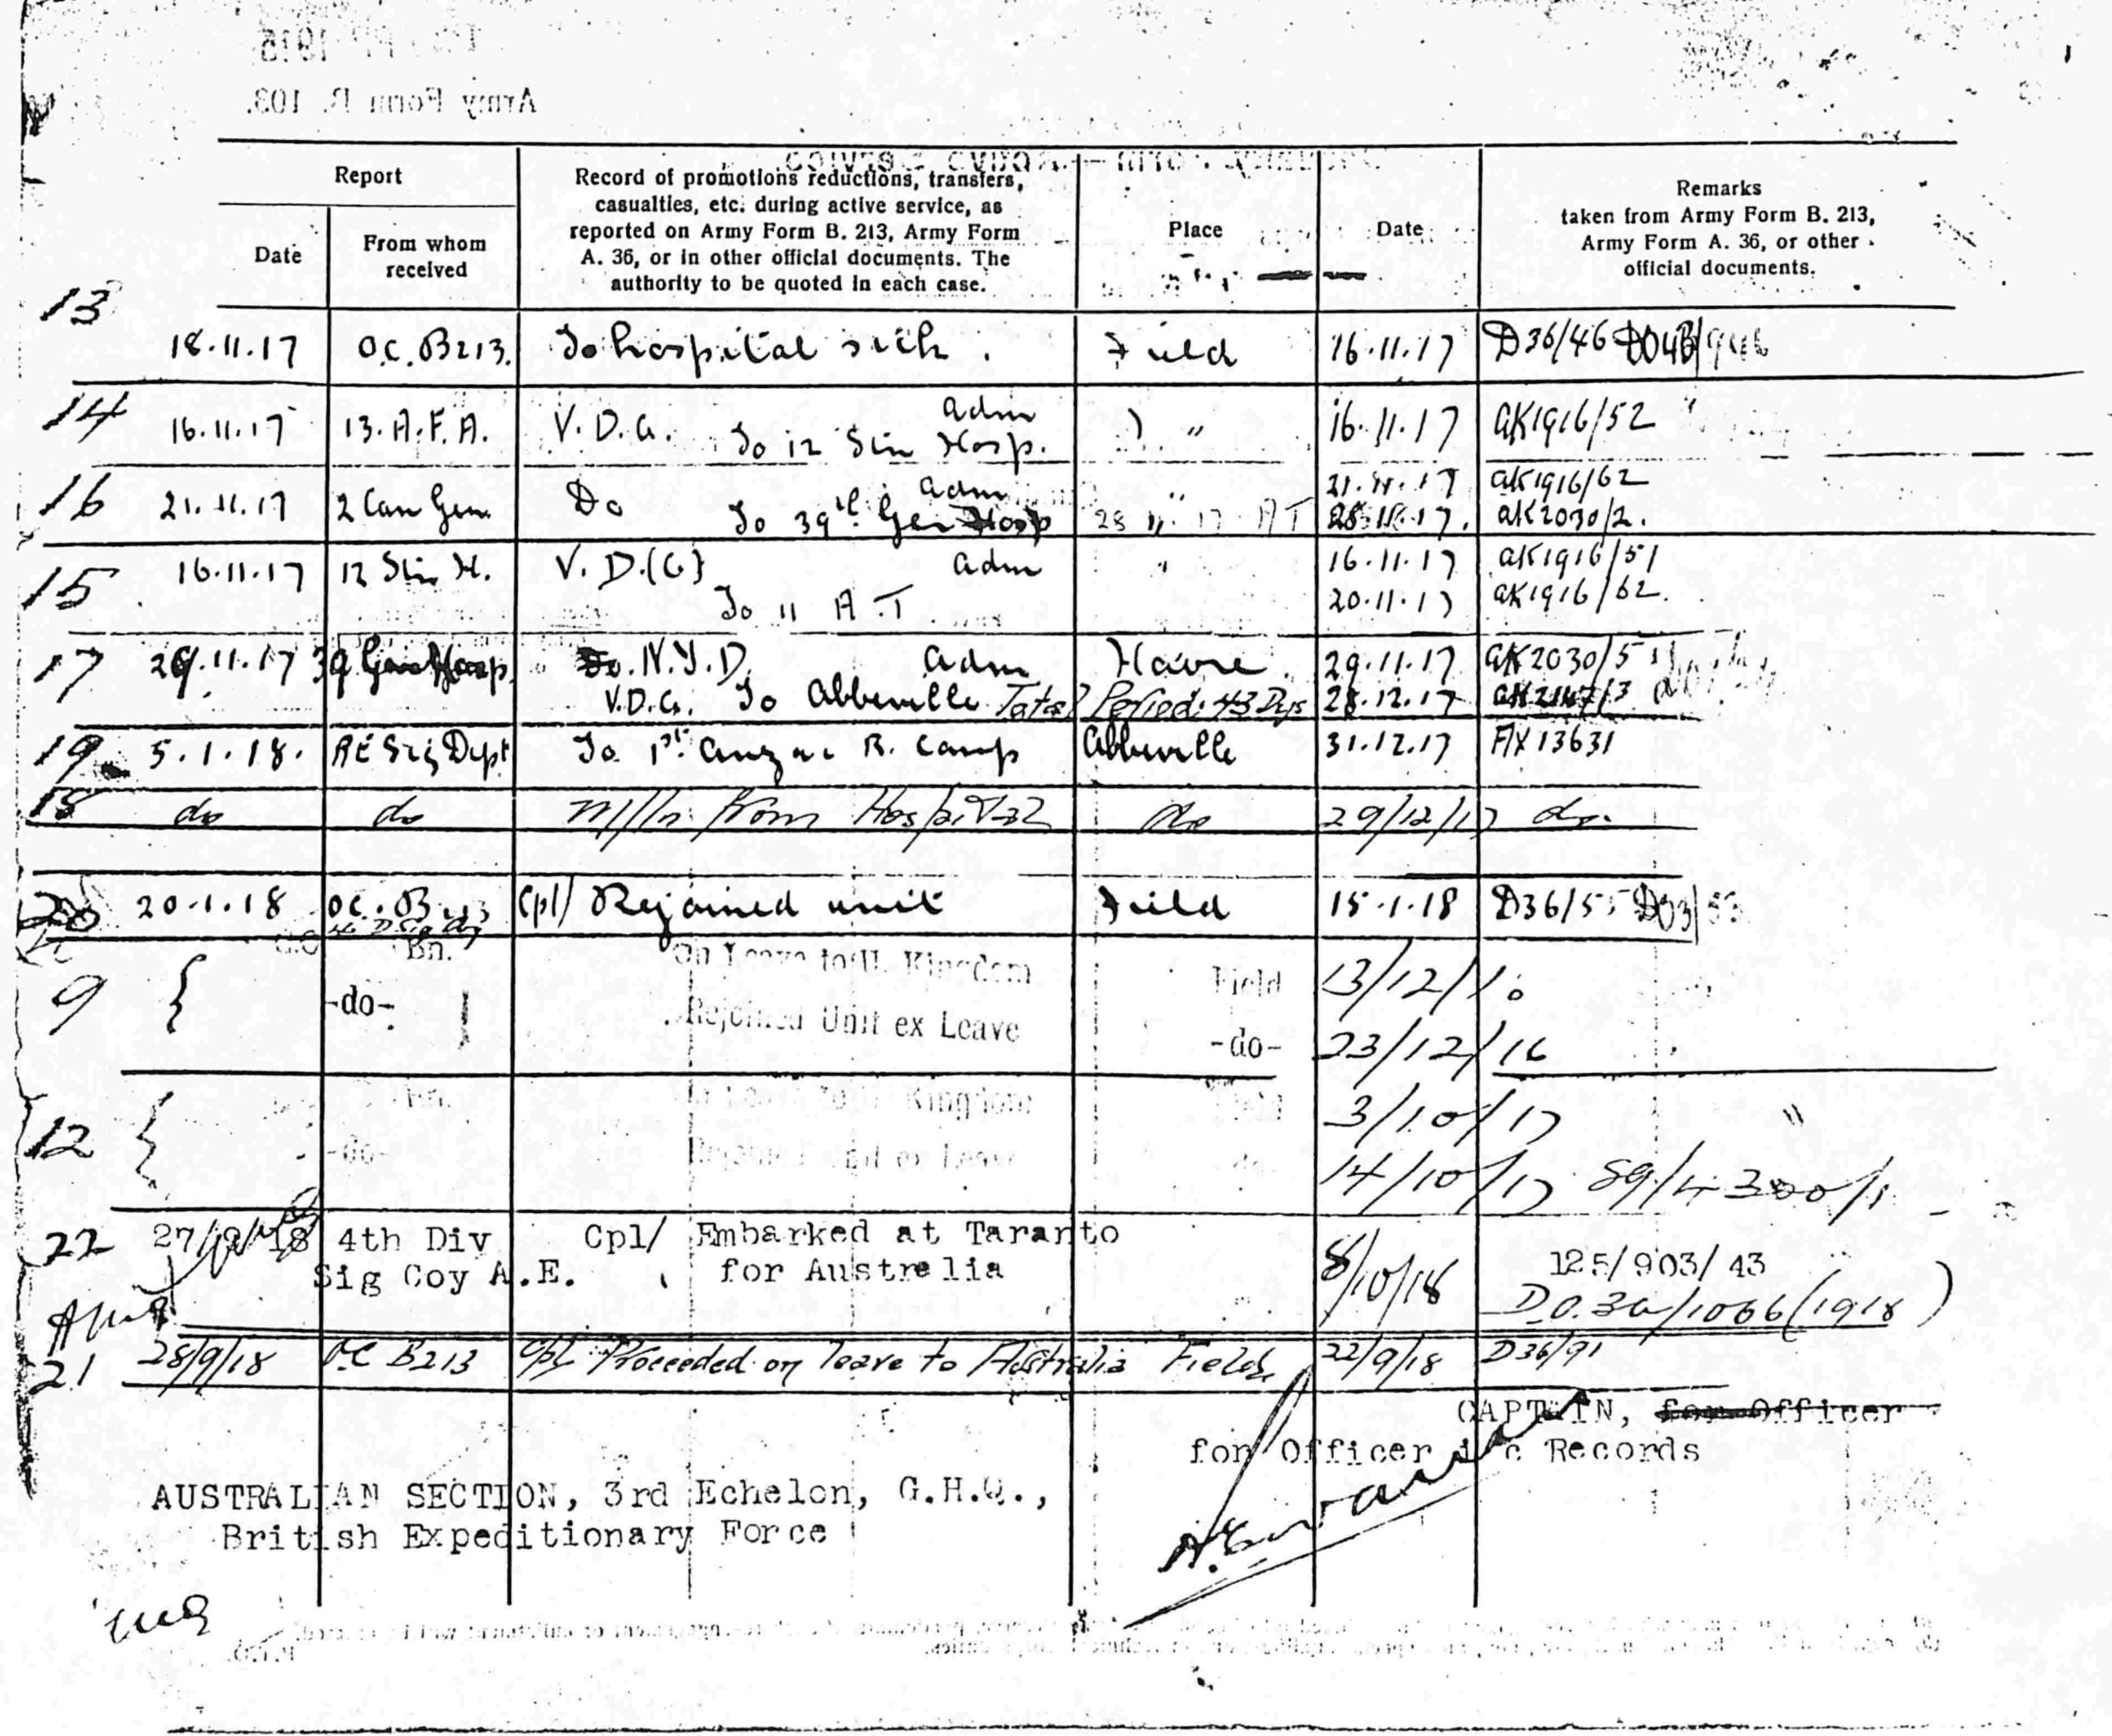 Army Form B. 103.
Report
Date
From whom
received
Record of promotions reductions, transfers,
casualties, etc. during active service, as
reported on Army Form B. 213, Army Form
A. 36, or in other official documents. The
authority to be quoted in each case.
Place
Date
Remarks
taken from Army Form B. 213,
Army Form A. 36, or other
official documents.
13 18.11.17 O.C. B213. To hospital sick. Field 16.11.17 D36/46
14 16.11.17 13.A.F.A. V.D.G. adm " 16.11.17 AK1916/52
To 12 Stn Hosp.
16 21.11.17 2 Can Gen. Do adm " 21.11.17 AK1916/62
To 39th Gen Hosp 28 11 17 AT 28.11.17. AK2030/2.
15 16.11.17 12 Stn H. V.D.(G) adm " 16.11.17 AK1916/51
To 11 A.T 20.11.17 AK1916/62.
17 29.11.17 39 Gen Hosp. N.Y.D. adm Havre 29.11.17 AK2030/5
V.D.G. To Abbeville Total Period: 43 Dys 28.12.17
19 5.1.18. RE Sig Dept To 1st Anzac R. Camp Abbeville 31.12.17 AX13631
18 do do M/In from Hospital do 29/12/17 do.
20 20.1.18 O.C. B213 Cpl/ Rejoined unit Field 15.1.18 D36/55
Bn. On Leave to U. Kingdom Field 13/12/16
9 { -do- Rejoined Unit ex Leave -do- 23/12/16
Bn. On Leave to U. Kingdom Field 3/10/17 "
12 { -do- Rejoined Unit ex Leave -do- 14/10/17 89/4300/1
22 27/9/18 4th Div Cpl/ Embarked at Taranto 8/10/18 125/903/43
Sig Coy A.E. for Australia
D.O.36/1066(1918)
21 28/9/18 OC B213 Cpl Proceeded on leave to Australia Field 22/9/18 D36/91
CAPTAIN, for Officer
for Officer i/c Records
AUSTRALIAN SECTION, 3rd Echelon, G.H.Q.,
British Expeditionary Force
P.T.O.